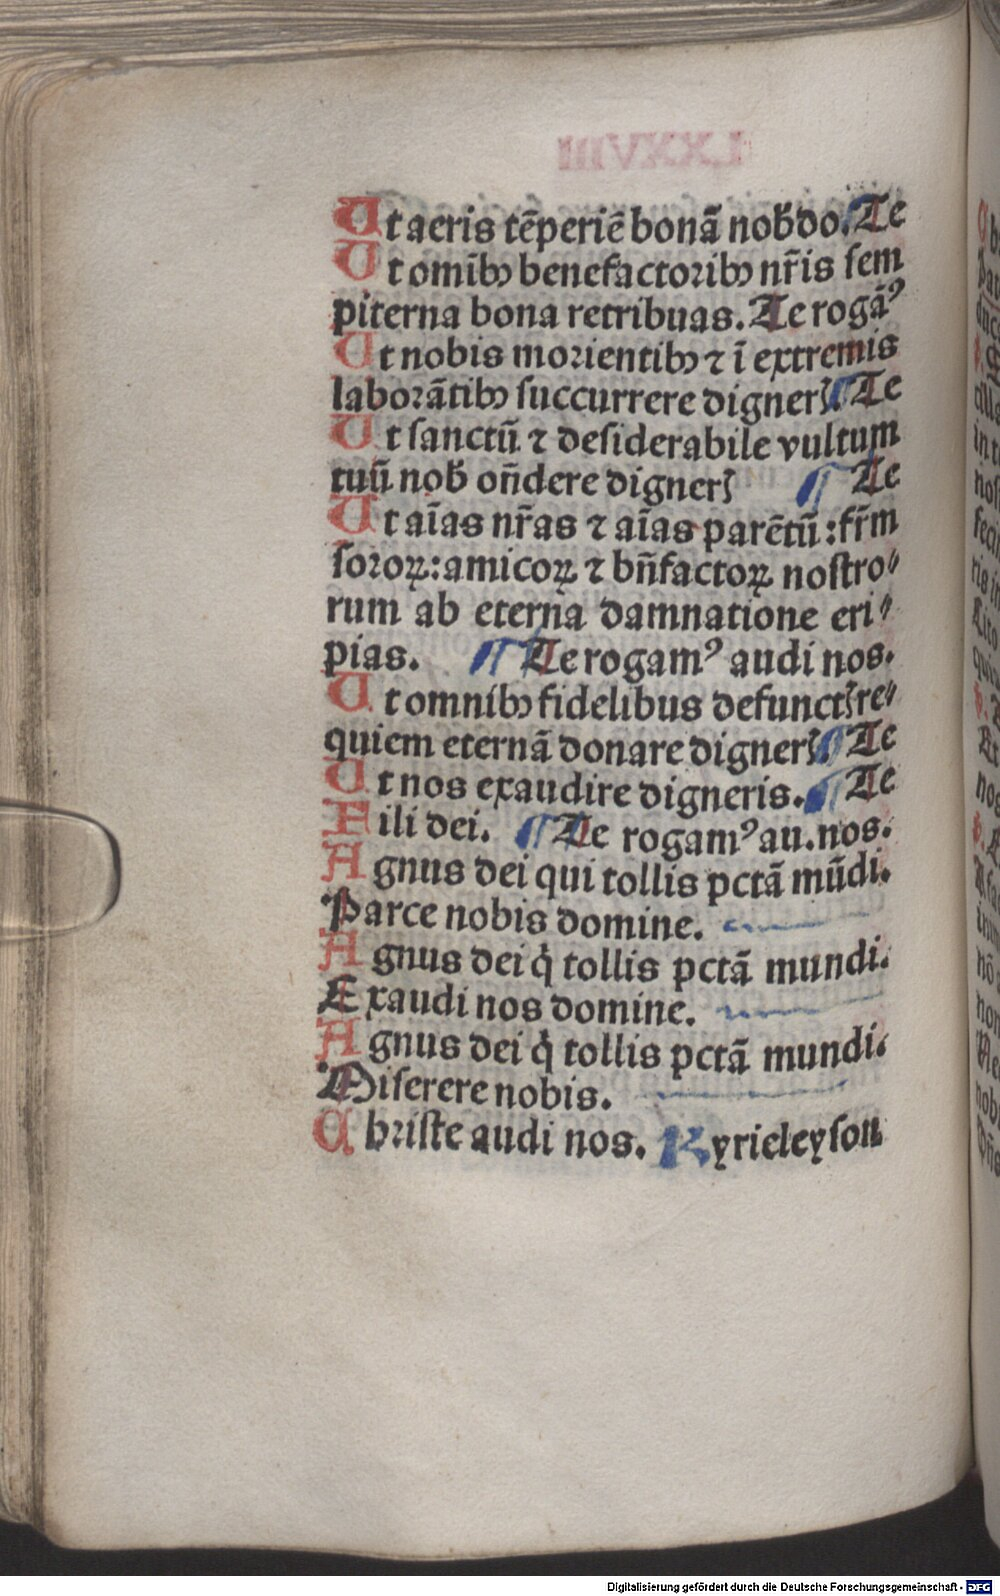 Ut aeris tēperiē bonā nob̄ do. ¶ Te
Ut omībꝫ benefactoribꝫ nr̄is ſem
piterna bona retribuas. Te rogāꝰ
Ut nobis moꝛientibꝫ ⁊ ī extremis
laboꝛātibꝫ ſuccurrere dignerꝭ. ¶ Te
Ut ſanctū ⁊ deſiderabile vultum
tuū nob̄ on̄dere dignerꝭ ¶ Te
Ut aīas nr̄as ⁊ aīas parētū: fr̄m
ſoꝛoꝝ: amicoꝝ ⁊ bn̄factoꝝ noſtro⸗
rum ab eterna damnatione eri⸗
pias. ¶ Te rogamꝰ audi nos.
Ut omnibꝫ fidelibus defunctꝭ re⸗
quiem eternā donare dignerꝭ. ¶ Te
Ut nos exaudire digneris. ¶ Te
Fili dei. ¶ Te rogamꝰ au. nos.
Agnus dei qui tollis pctā mūdi.
Parce nobis domine.
Agnus dei q̇ tollis pctā mundi.
Exaudi nos domine.
Agnus dei q̇ tollis pctā mundi.
Miſerere nobis.
Chꝛiſte audi nos. Kyrieleyſon
Digitalisierung gefördert durch die Deutsche Forschungsgemeinschaft - DFG